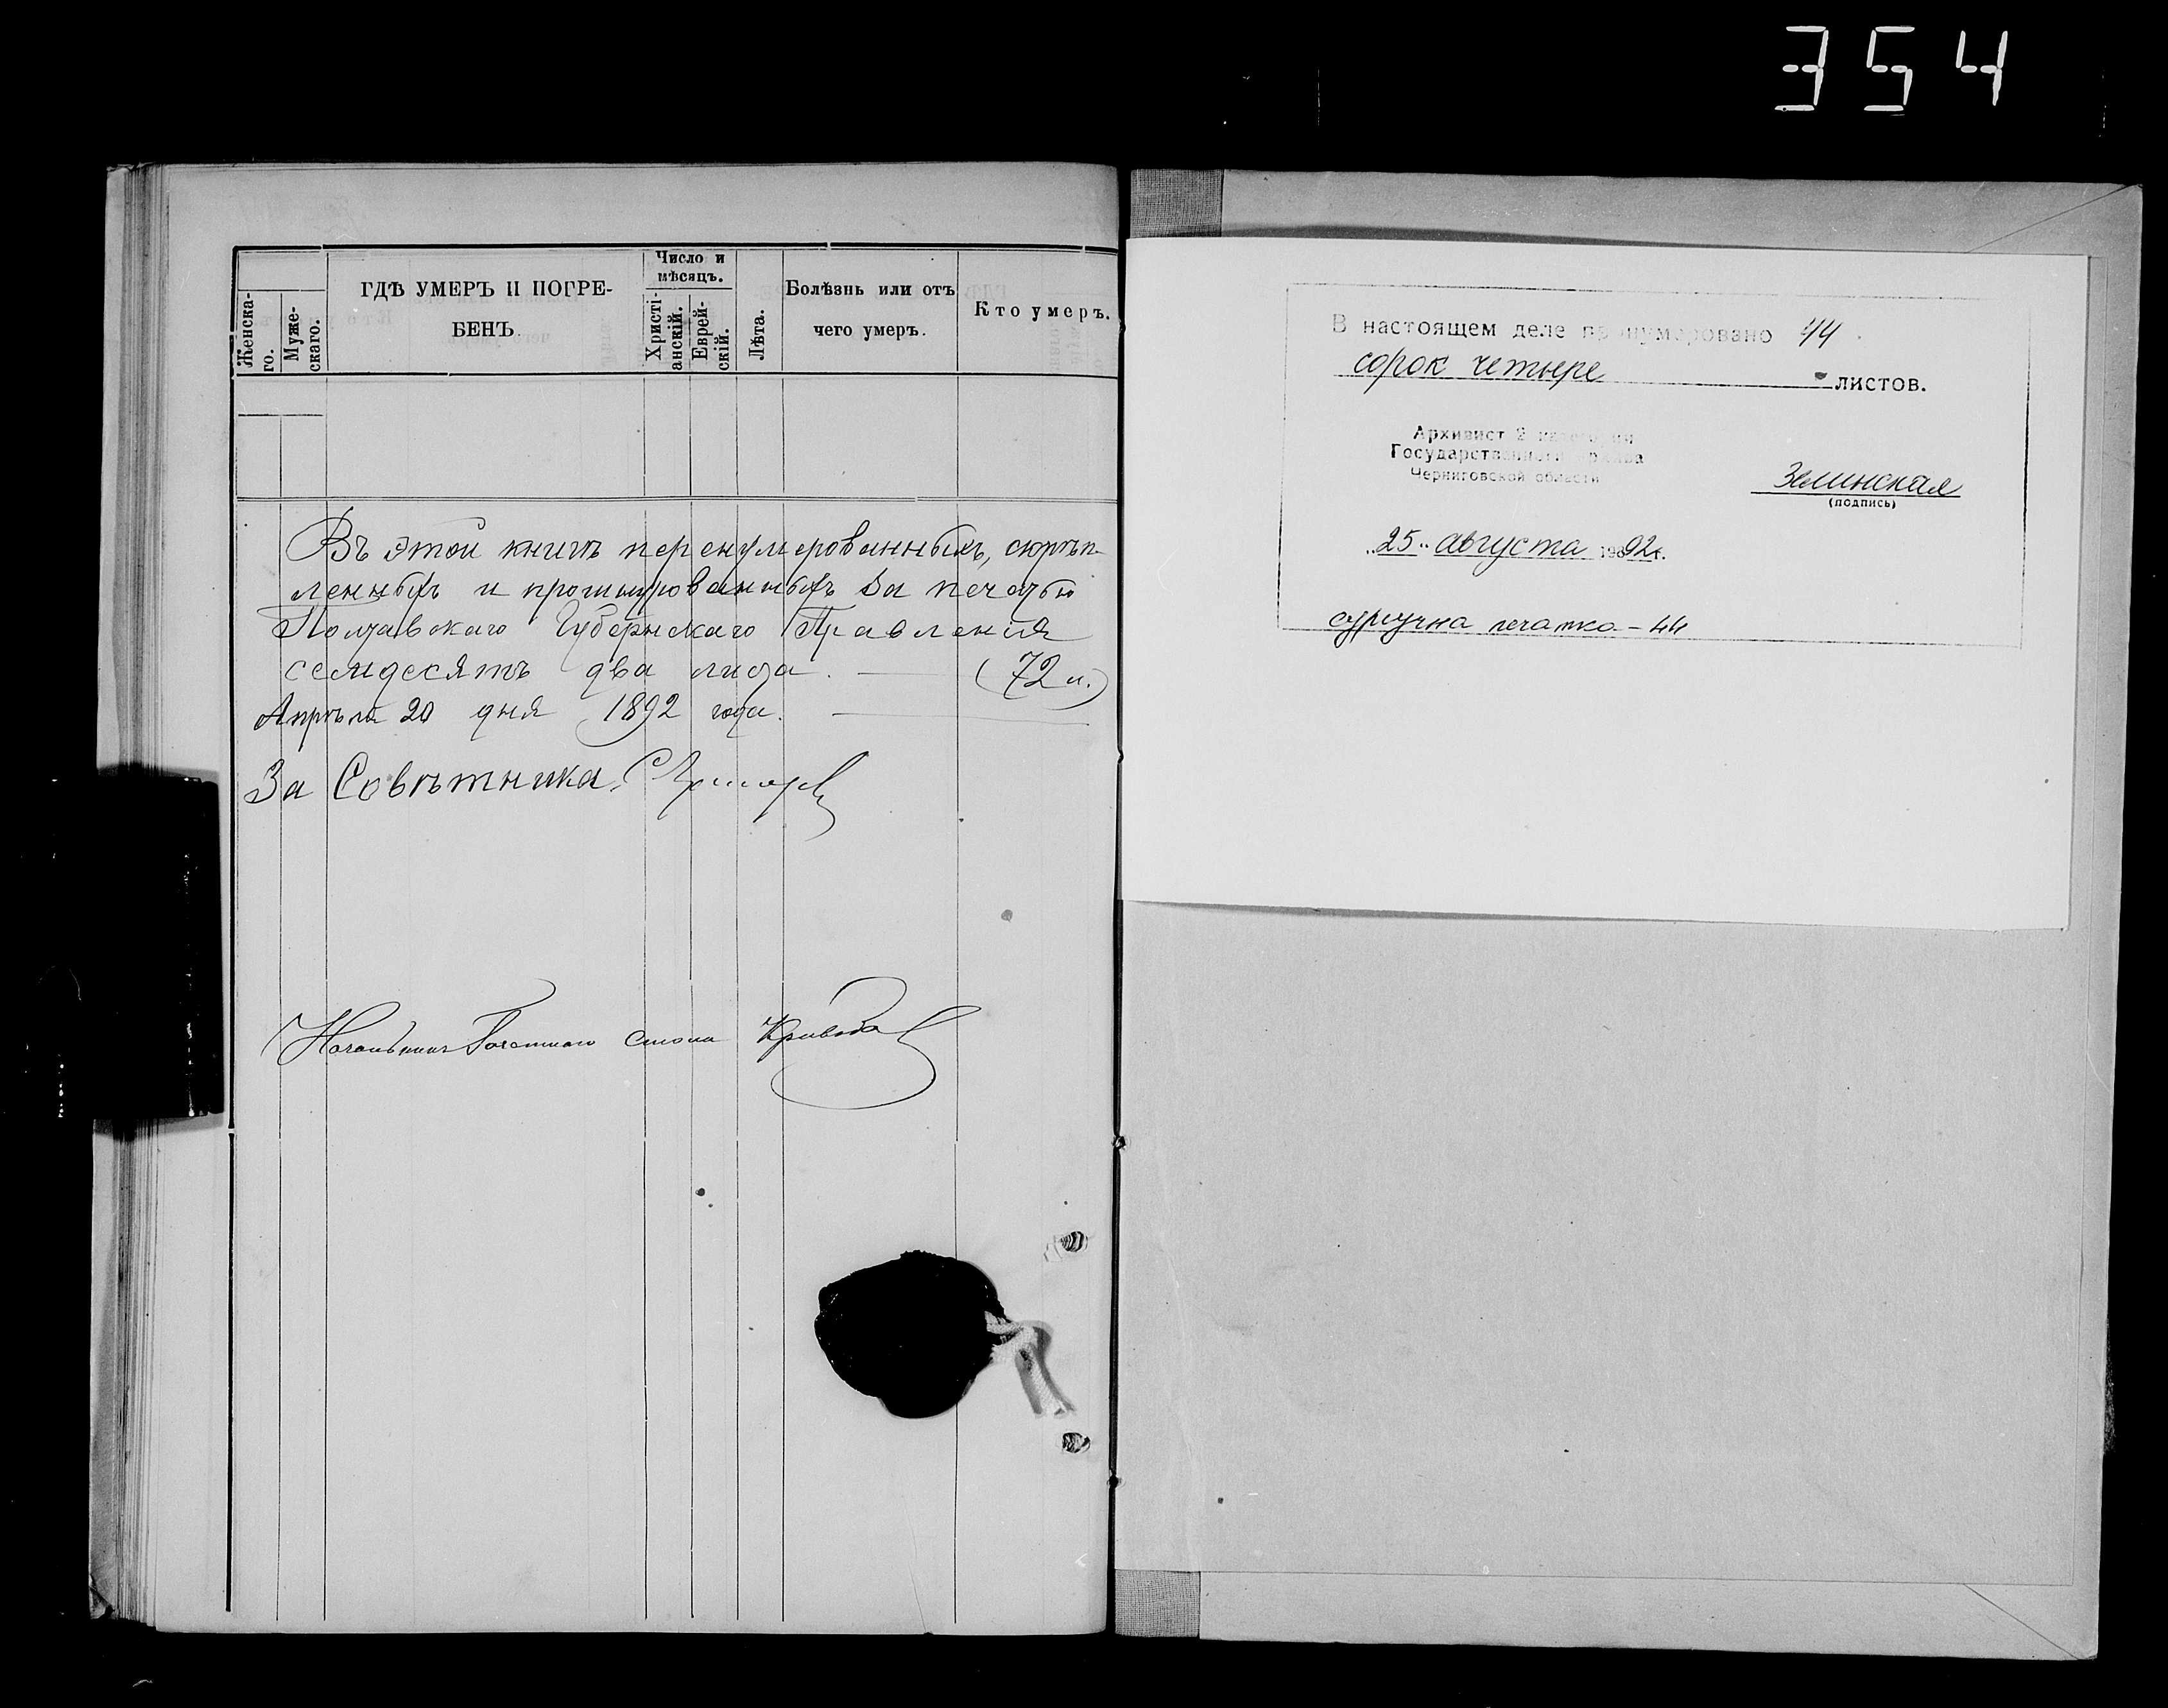 354
Женска-
го.
Муже-
скаго.
ГДѢ УМЕРЪ И ПОГРЕ-
БЕНЪ
Число и
мѣсяцъ.
Христі-
анскій.
Еврей-
скій.
Лѣта.
Болѣзнь или отъ
чего умеръ.
Кто умеръ.
Въ этой книгѣ перенумерованныхъ, скрѣп-
ленныхъ и прошнурованныхъ за печатью
Полтавскаго Губернскаго Правленія
семдесятъ два листа. (72 л.)
Апрѣля 20 дня 1892 года.
За Совѣтника,
Начальникъ стола
В настоящем деле пронумеровано 44
сорок четыре листов.
Архивист 2 категории
Государственного архива
Черниговской области
Зелинская
(подпись)
"25" августа 1992г.
сургучна печатка - 44